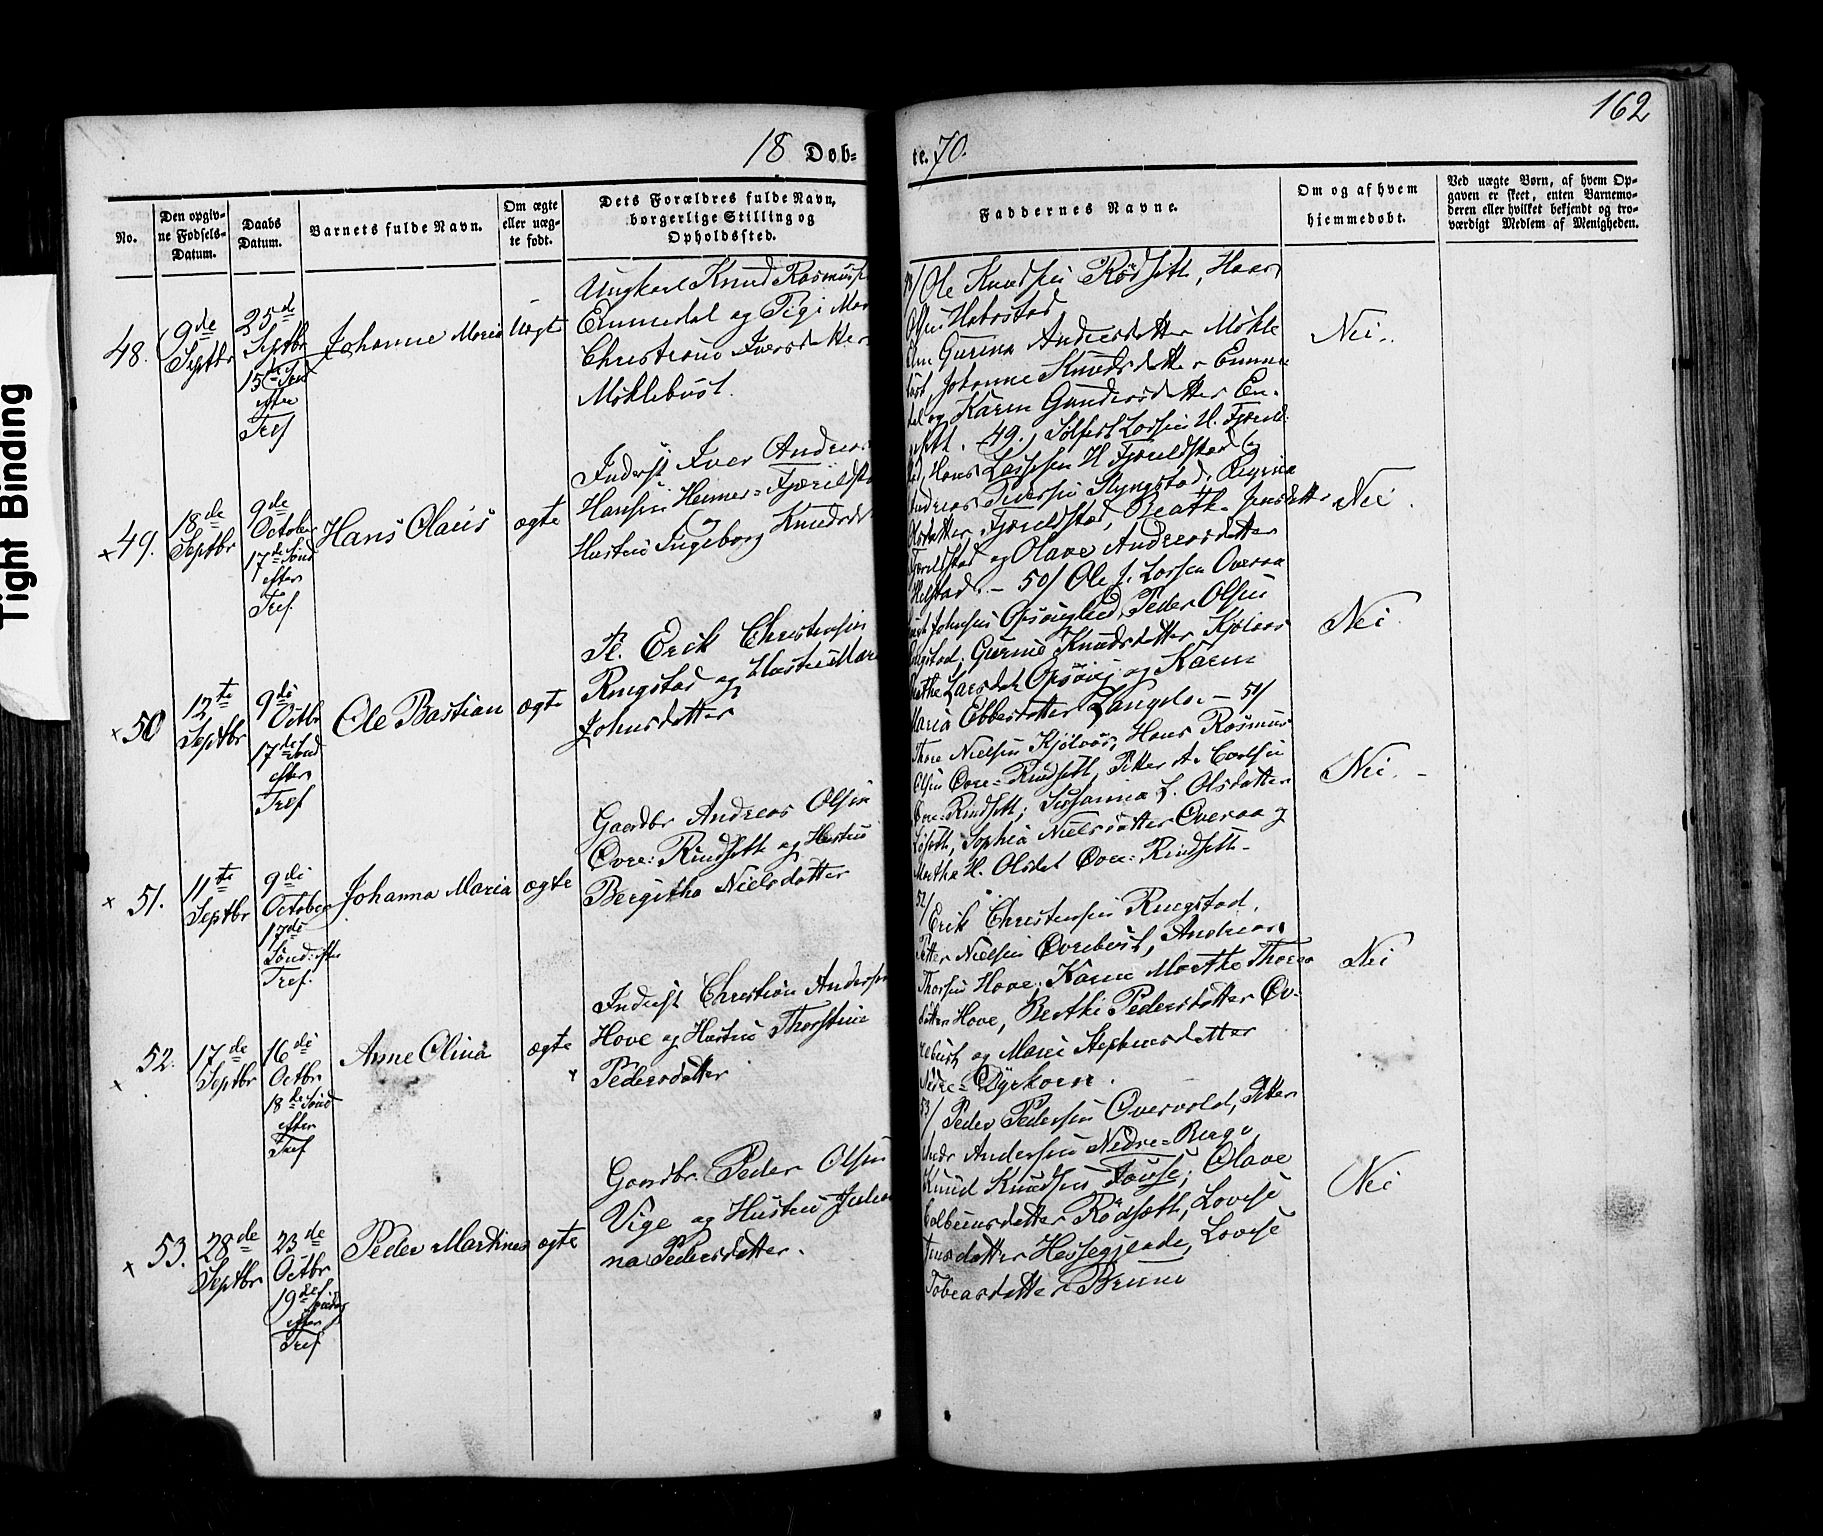 162
18 Døb=
te. 70.
No.
Den opgiv-
ne Fødsels-
Datum.
Daabs
Datum.
Barnets fulde Navn.
Om ægte
eller uæg-
te født.
Dets Forældres fulde Navn,
borgerlige Stilling og
Opholdssted.
Faddernes Navne.
Om og af hvem
hjemmedøbt.
Ved uægte Børn, af hvem Op-
gaven er skeet, enten Barnemo-
deren eller hvilket bekjendt og tro-
værdigt Medlem af Menigheden.
48.
9de
Septbr
25de
Septbr
15de Sønd
efter
Tref
Johanne Maria
Uægte
Ungkarl Knud Rasmus
Emmedal og Pige Mar
Christiane Iversdatter
Møklebust.
Ole Knudsen Rødseth, Hans
Olsen Habostad
Gurina Andersdatter Møkle
bust, Johanne Knudsdatter Emme
dal og Karen Gundersdatter En-
seth. 49., Larsen H. Fjæreld
Nei.
× 49.
18de
Septbr
9de
October
17de Sønd
efter
Tref.
Hans Olaus
ægte
Inderst Iver Andreas
Hansen Hemer= Fjæreldsta
og
Hustru Ingeborg Knudsd
Hans Larsen H Fjæreldstad og
Andreas Iversen Slyngstad, Regina
Olsdatter Fjæreldstad, Beathe Jensdatter
Fjæreldstad og Olave Andreasdatter
Helstad. - 50/ Ole J. Larsen Overaa
Nei.
× 50
12te
Septbr
9de
Octbr
17de Sønd
efter
Tref
Ole Bastian
ægte
Erik Christensen
Ringstad og Hustru Mar
Johnsdatter
Johnsen Peder Olsen
Ringstad, Gurine Knudsdatter Kjølaas
Marthe Larsdat og Karen
Maria Ebbesdatter Langelo - 51/
Nei.
× 51.
11te
Septbr
9de
October
17de
Sønd: efter
Tref.
Johanna Maria
ægte
Gaardbr Andreas Olsen
Øvre= Rindseth og Hustru
Bergitha Nielsdatter
Thore Nielsen Kjølaas, Hans Rasmus
Olsen Øvre= Rindseth, Petter A. Carlsen
Øvre= Rindseth, Susanna L. Olsdatter
Løseth, Sophia Nielsdatter Overaa og
Marthe H. Olsdat Øvre= Rindseth -
Nei. -
× 52.
17de
Septbr
16de
Octbr
18de Sønd
efter
Tref
Anne Olina
ægte
Inderst Christian Anders
Hove og Hustru Thorstine
Pedersdatter
52/
Erik Christensen Ringstad,
Petter Nielsen Øvrebust, Andreas
Thorsen Hove, Karen Marthe Thores
datter Hove, Berthe Pedersdatter Øv-
rebust og Marie Stephensdatter
Nedre= Dyrkorn.
Nei
× 53.
28de
Septbr
23de
Octbr
19de Søndag
efter
Tref
Peder Martinus
ægte
Gaardbr. Peder Olsen
Vige og Hustru Julia
na Pedersdatter.
53/ Peder Pedersen Overvold, Petter
Andr Andersen Nedre= Berge,
Knud Knudsen Tovse, Olave
Colbeensdatter Rødseth, Lovise
datter Hessegjerde, Lovise
Tobiasdatter Brune
Nei
Tight Binding